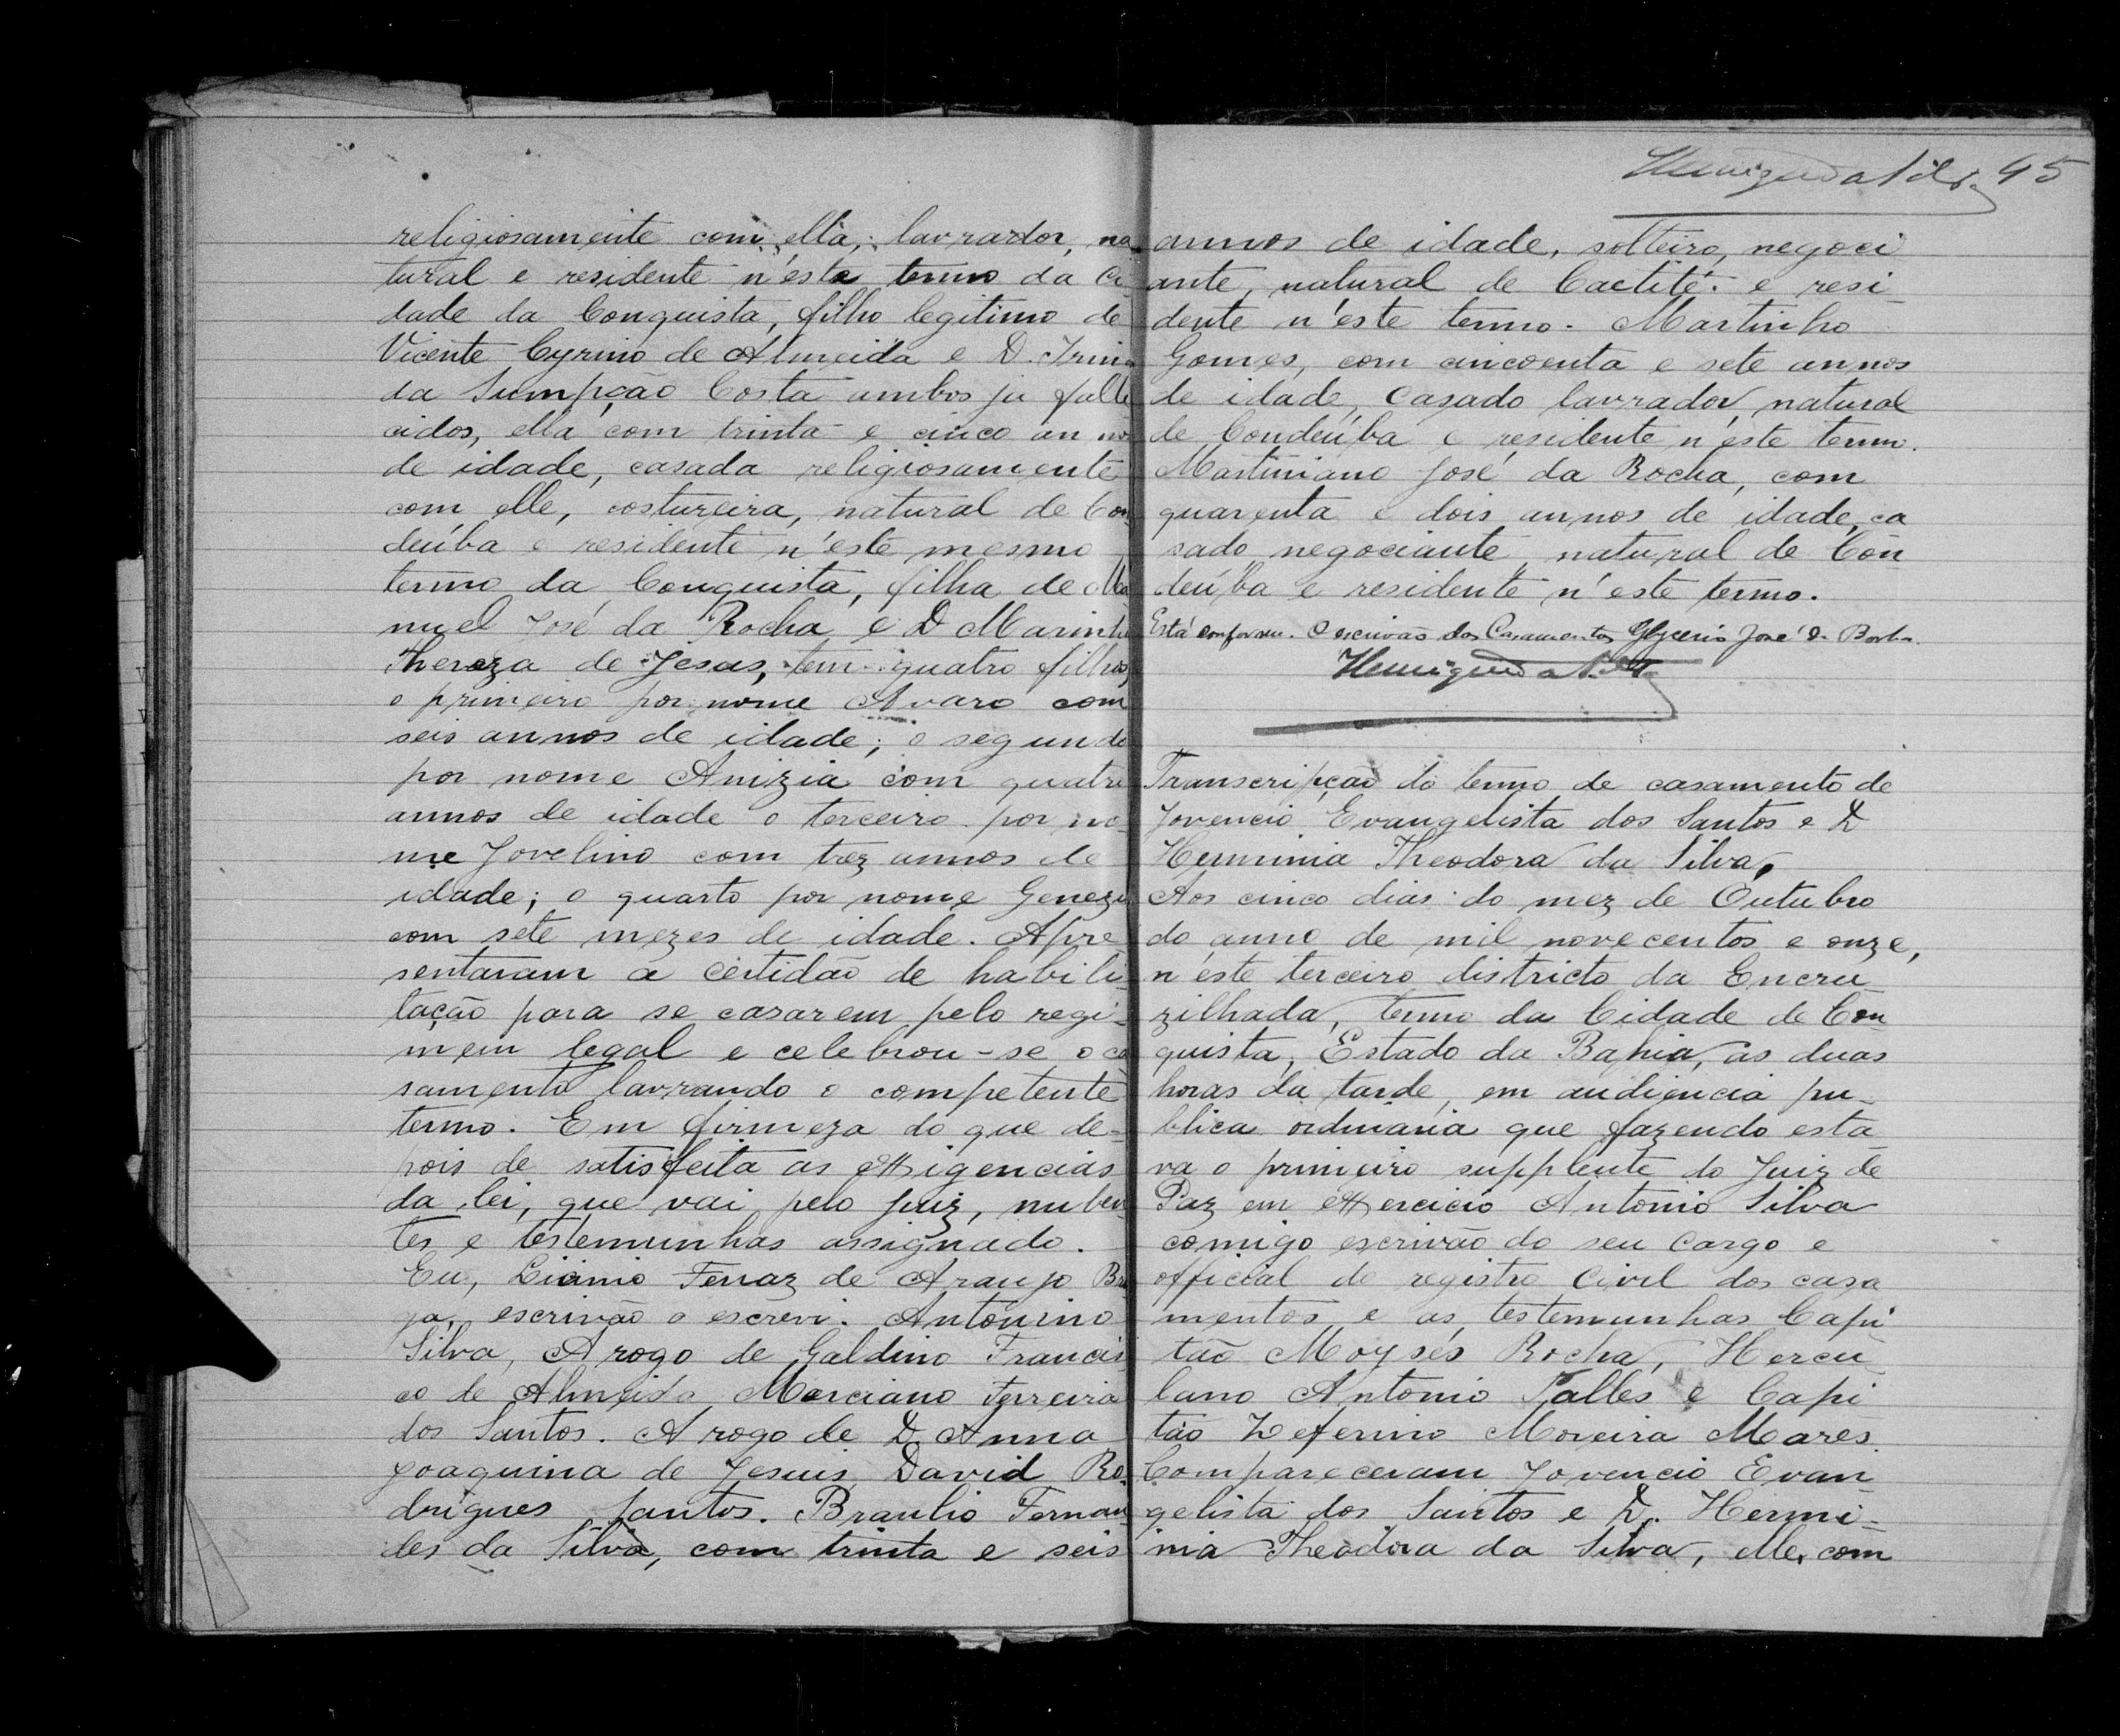 religiosamente com ella, lavrador, na
tural e residente n'este termo da Ci
dade da Conquista, filho legitimo de
Vicente Cyrino de Almeida e D. Irina
da Sumpção Costa ambos ja falle
cidos, ella com trinta e cinco an nos
de idade, casada religiosamente
com elle, costureira, natural de Con
deúba e residente n'este mesmo
termo da Conquista, filha de Ma
nuel José da Rocha e D Marinha
Thereza de Jesus, tem quatro filhos
o primeiro por nome Alvaro com
seis annos de idade; o segundo
por nome Anizia com quatro
annos de idade o terceiro por no-
me Jovelino com trez annos de
idade; o quarto por nome Genezi
com sete mezes de idade. Apre
sentaram a certidão de habili-
tação para se casarem pelo regi-
mem legal e celebrou-se o ca
samento lavrando o competente
termo. Em firmeza do que de-
pois de satisfeita as exigencias
da lei, que vai pelo juiz, nuben
tes e testemunhas assignado.
Eu, Licinio Ferraz de Araujo Bra
ga, escrivão o escrevi. Antonino
Silva, A rogo de Galdino Francis
co de Almeida Marciano Ferreira
dos Santos. A rogo de D. Anna
Joaquina de Jesus David Ro-
drigues Santos. Braulio Fernan
des da Silva, com trinta e seis
45
annos de idade, solteiro, negoci
ante, natural de Caetité e resi-
dente n'este termo. Martinho
Gomes, com cincoenta e sete annos
de idade, casado lavrador, natural
de Condeúba e residente n'este termo.
Martiniano José da Rocha, com
quarenta e dois annos de idade, ca
sado negociante natural de Con
deúba e residente n'este termo.
Está conforme. O escrivão dos Casamentos Glycerio José de Borba
Transcripção do termo de casamento de
Jovencio Evangelista dos Santos e D
Herminia Theodora da Silva,
Aos cinco dias do mez de Outubro
do anno de mil novecentos e onze,
n'este terceiro districto da Encru
zilhada, termo da Cidade de Con
quista, Estado da Bahia, as duas
horas da tarde, em audiencia pu-
blica ordinaria que fazendo esta
va o primeiro supplente do Juiz de
Paz em exercicio Antonio Silva
comigo escrivão do seu cargo e
official do registro Civil dos casa
mentos e as testemunhas Capi
tão Moysés Rocha, Hercu
lano Antonio Salles e Capi
tão Zeferino Moreira Mares.
Compareceram Jovencio Evan
gelista dos Santos e D. Hermi-
nia Theodora da Silva, elle, com